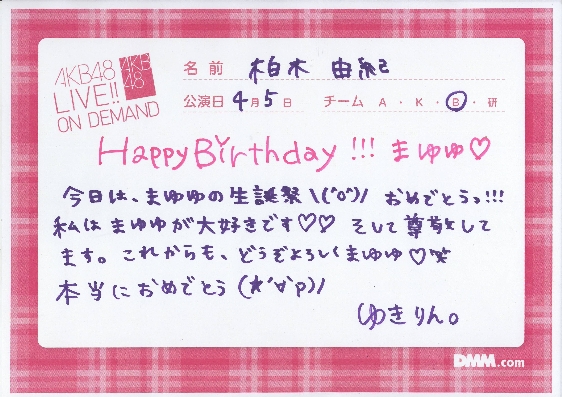 AKB48
LIVE!!
ON DEMAND
AKB
48
名前 柏木 由紀
公演日 4月5日 チーム A・K・B・研
Happy Birthday!!! まゆゆ♡
今日は、まゆゆの生誕祭\(^o^)/ おめでとうっ!!!
私はまゆゆが大好きです♡♡ そして尊敬して
ます。これからも、どうぞよろしくまゆゆ♡笑
本当におめでとう(*'∀'p)/
ゆきりん。
DMM.com